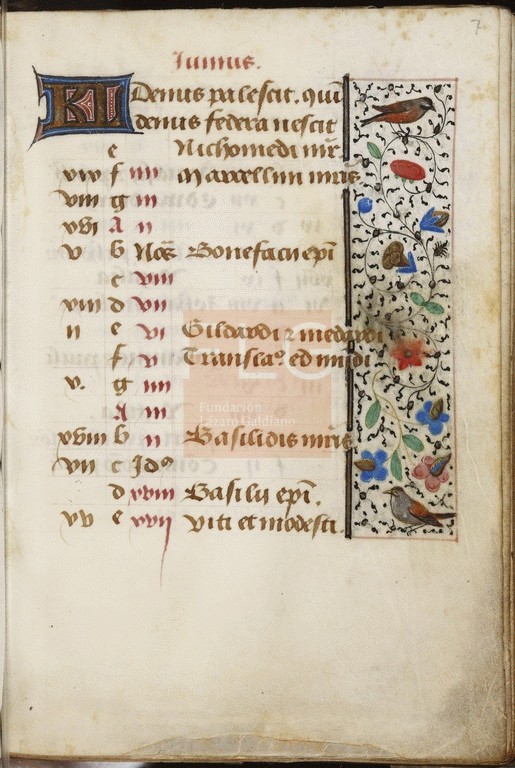 7
Iunius.
KL Denus palescit. qui
denus federa nescit
e Nichomedi mr̃.
f iiii Marcellini mr̃is
g iii
A ii
v b Nos̃ Bonefacii ep̃i
c viii
d viii
ii e vi Gildardi ⁊ medardi
f v Transla.º edmũdi
v. g iiii
A iii
b ii Basilidis mr̃is
c Idº
d Basilii ep̃i.
e Viti et modesti.
Fundación
Lázaro Galdiano